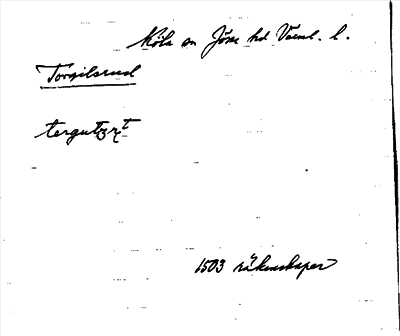 Köla sn Jösse hd Värml. l.
Torgilsrud
tergutzrt
1503 räkenskaper